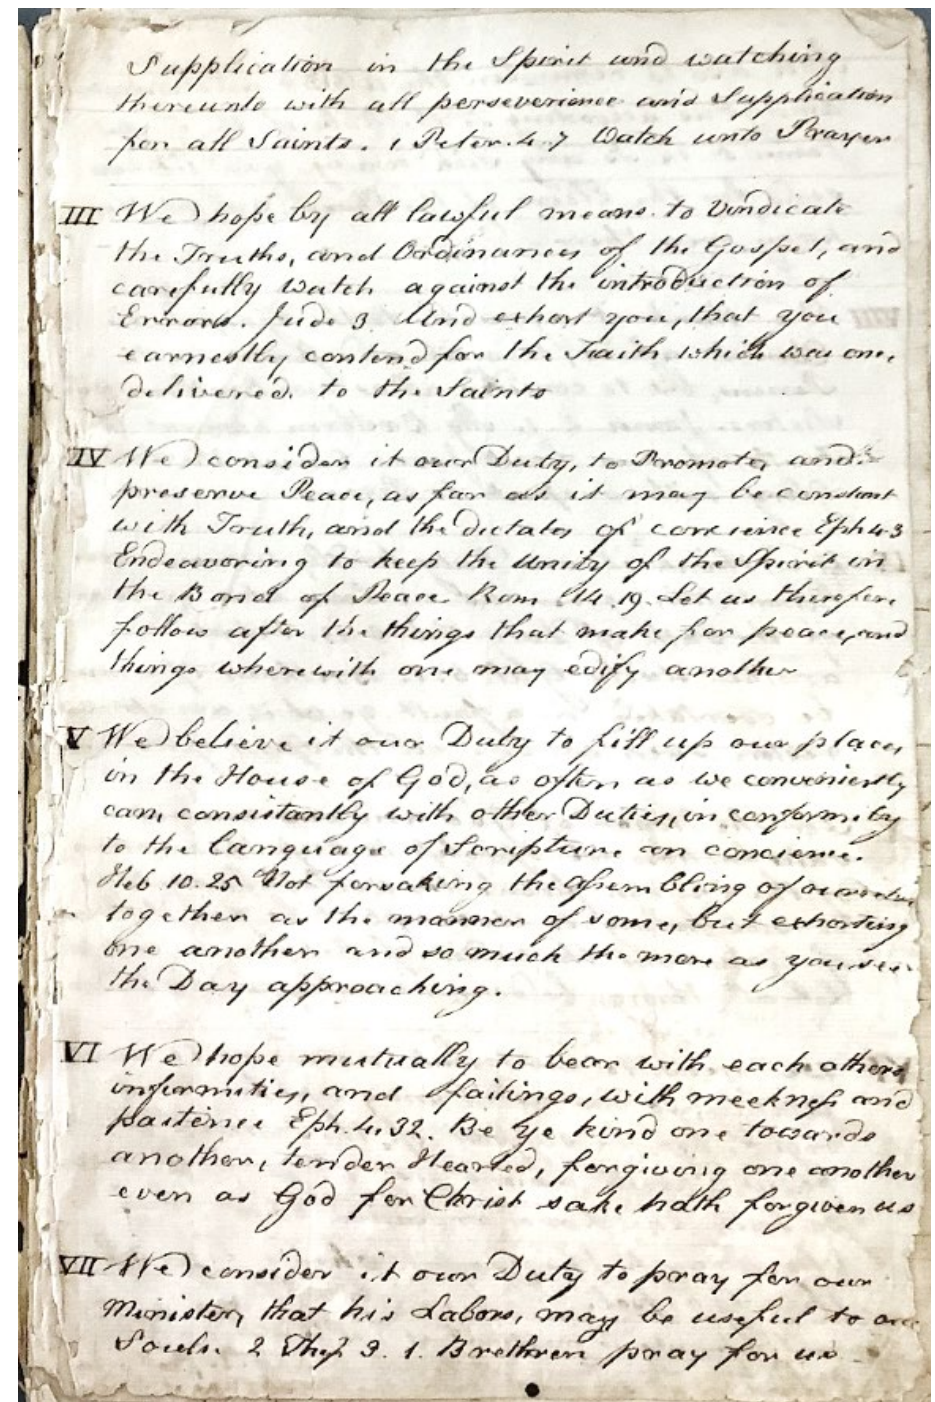 Supplication in the Spirit and watching
thereunto with all perseverience and Supplication
for all Saints. 1 Peter. 4. 7 Watch unto Prayer
III We hope by all lawful means to Vindicate
the Truths, and Ordinances of the Gospel, and
carefully watch against the introduction of
Errors. Jude 3. And exhort you, that you
earnestly contend for the Faith which was once
delivered to the Saints
IV We consider it our Duty, to Promote, and
preserve Peace, as far as it may be
with Truth, and the dictates of concience Eph 4.3
Endeavoring to keep the Unity of the Spirit in
the Bond of Peace Rom 14. 19. Let us therefore
follow after the things that make for peace, and
things wherewith one may edify another
V We believe it our Duty to fill up our places
in the House of God, as often as we conveniently
can, consistantly with other Duties, in conformity
to the Language of Scripture an concience.
Heb 10. 25 Not forsaking the assembling of ourselves
together as the manner of some, but exhorting
one another and so much the more as you see
the Day approaching.
VI We hope mutually to bear with each others
infirmities, and failings, with meekness and
patience Eph. 4. 32. Be ye kind one towards
another, tender Hearted, forgiving one another
even as God for Christ sake hath forgiven us
VII We consider it our Duty to pray for our
Minister, that his Labors, may be useful to our
Souls. 2 Thes 3. 1. Brethren pray for us